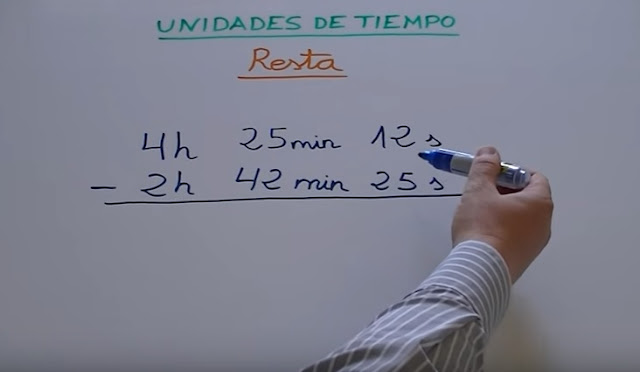 UNIDADES DE TIEMPO
Resta
4h 25min 12s
- 2h 42 min 25 s